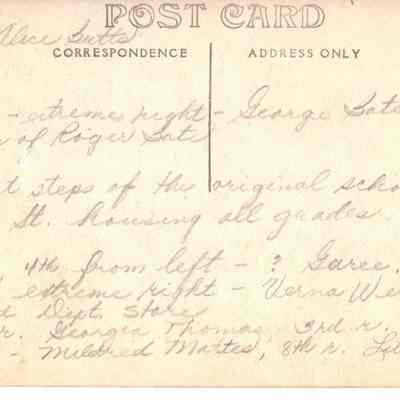 POST CARD
Alice Butts
CORRESPONDENCE ADDRESS ONLY
- extreme right - George Bate
of Roger Bate
t steps of the original scho
St. housing all grades.
4th from left - ? Garee,
extreme right - Verna We
d Dept. Store
r. Georgia Thomas, 3rd r.
- Mildred Mattes, 8th r.